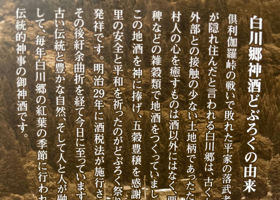 白川郷神酒どぶろくの由来
倶利伽羅峠の戦いで敗れた平家の落武者
が隠れ住んだと言われる白川郷は、古く
外部との接触の少ない土地柄であった
村人の心を癒すものは酒以外にはなく、
稗などの雑穀類で地酒をつくっていまし
この地酒を神に捧げ、五穀豊穣を感謝
里の安全と平和を祈ったのがどぶろく祭り
発祥です。明治29年に酒税法が施行さ
その後紆余曲折を経て今日に至っています
古い伝統と豊かな自然、そして人と人が融
して、毎年白川郷の紅葉の季節に行われ
伝統的神事の御神酒です。